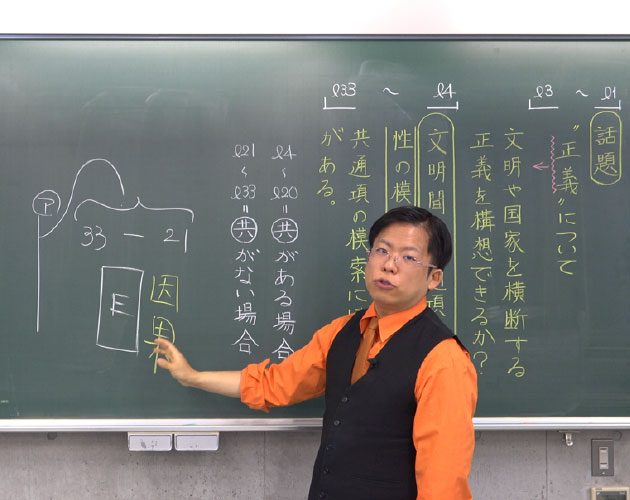 ℓ3 ~ ℓ1
話題
"正義"について
文明や国家を横断する
正義を構想できるか?
ℓ33 ~ ℓ4
文明間 項
性の模
共通項の模索に
がある。
ℓ4~ℓ20=共がある場合
ℓ21~ℓ33=共がない場合
ア
33 — 21
因果
E